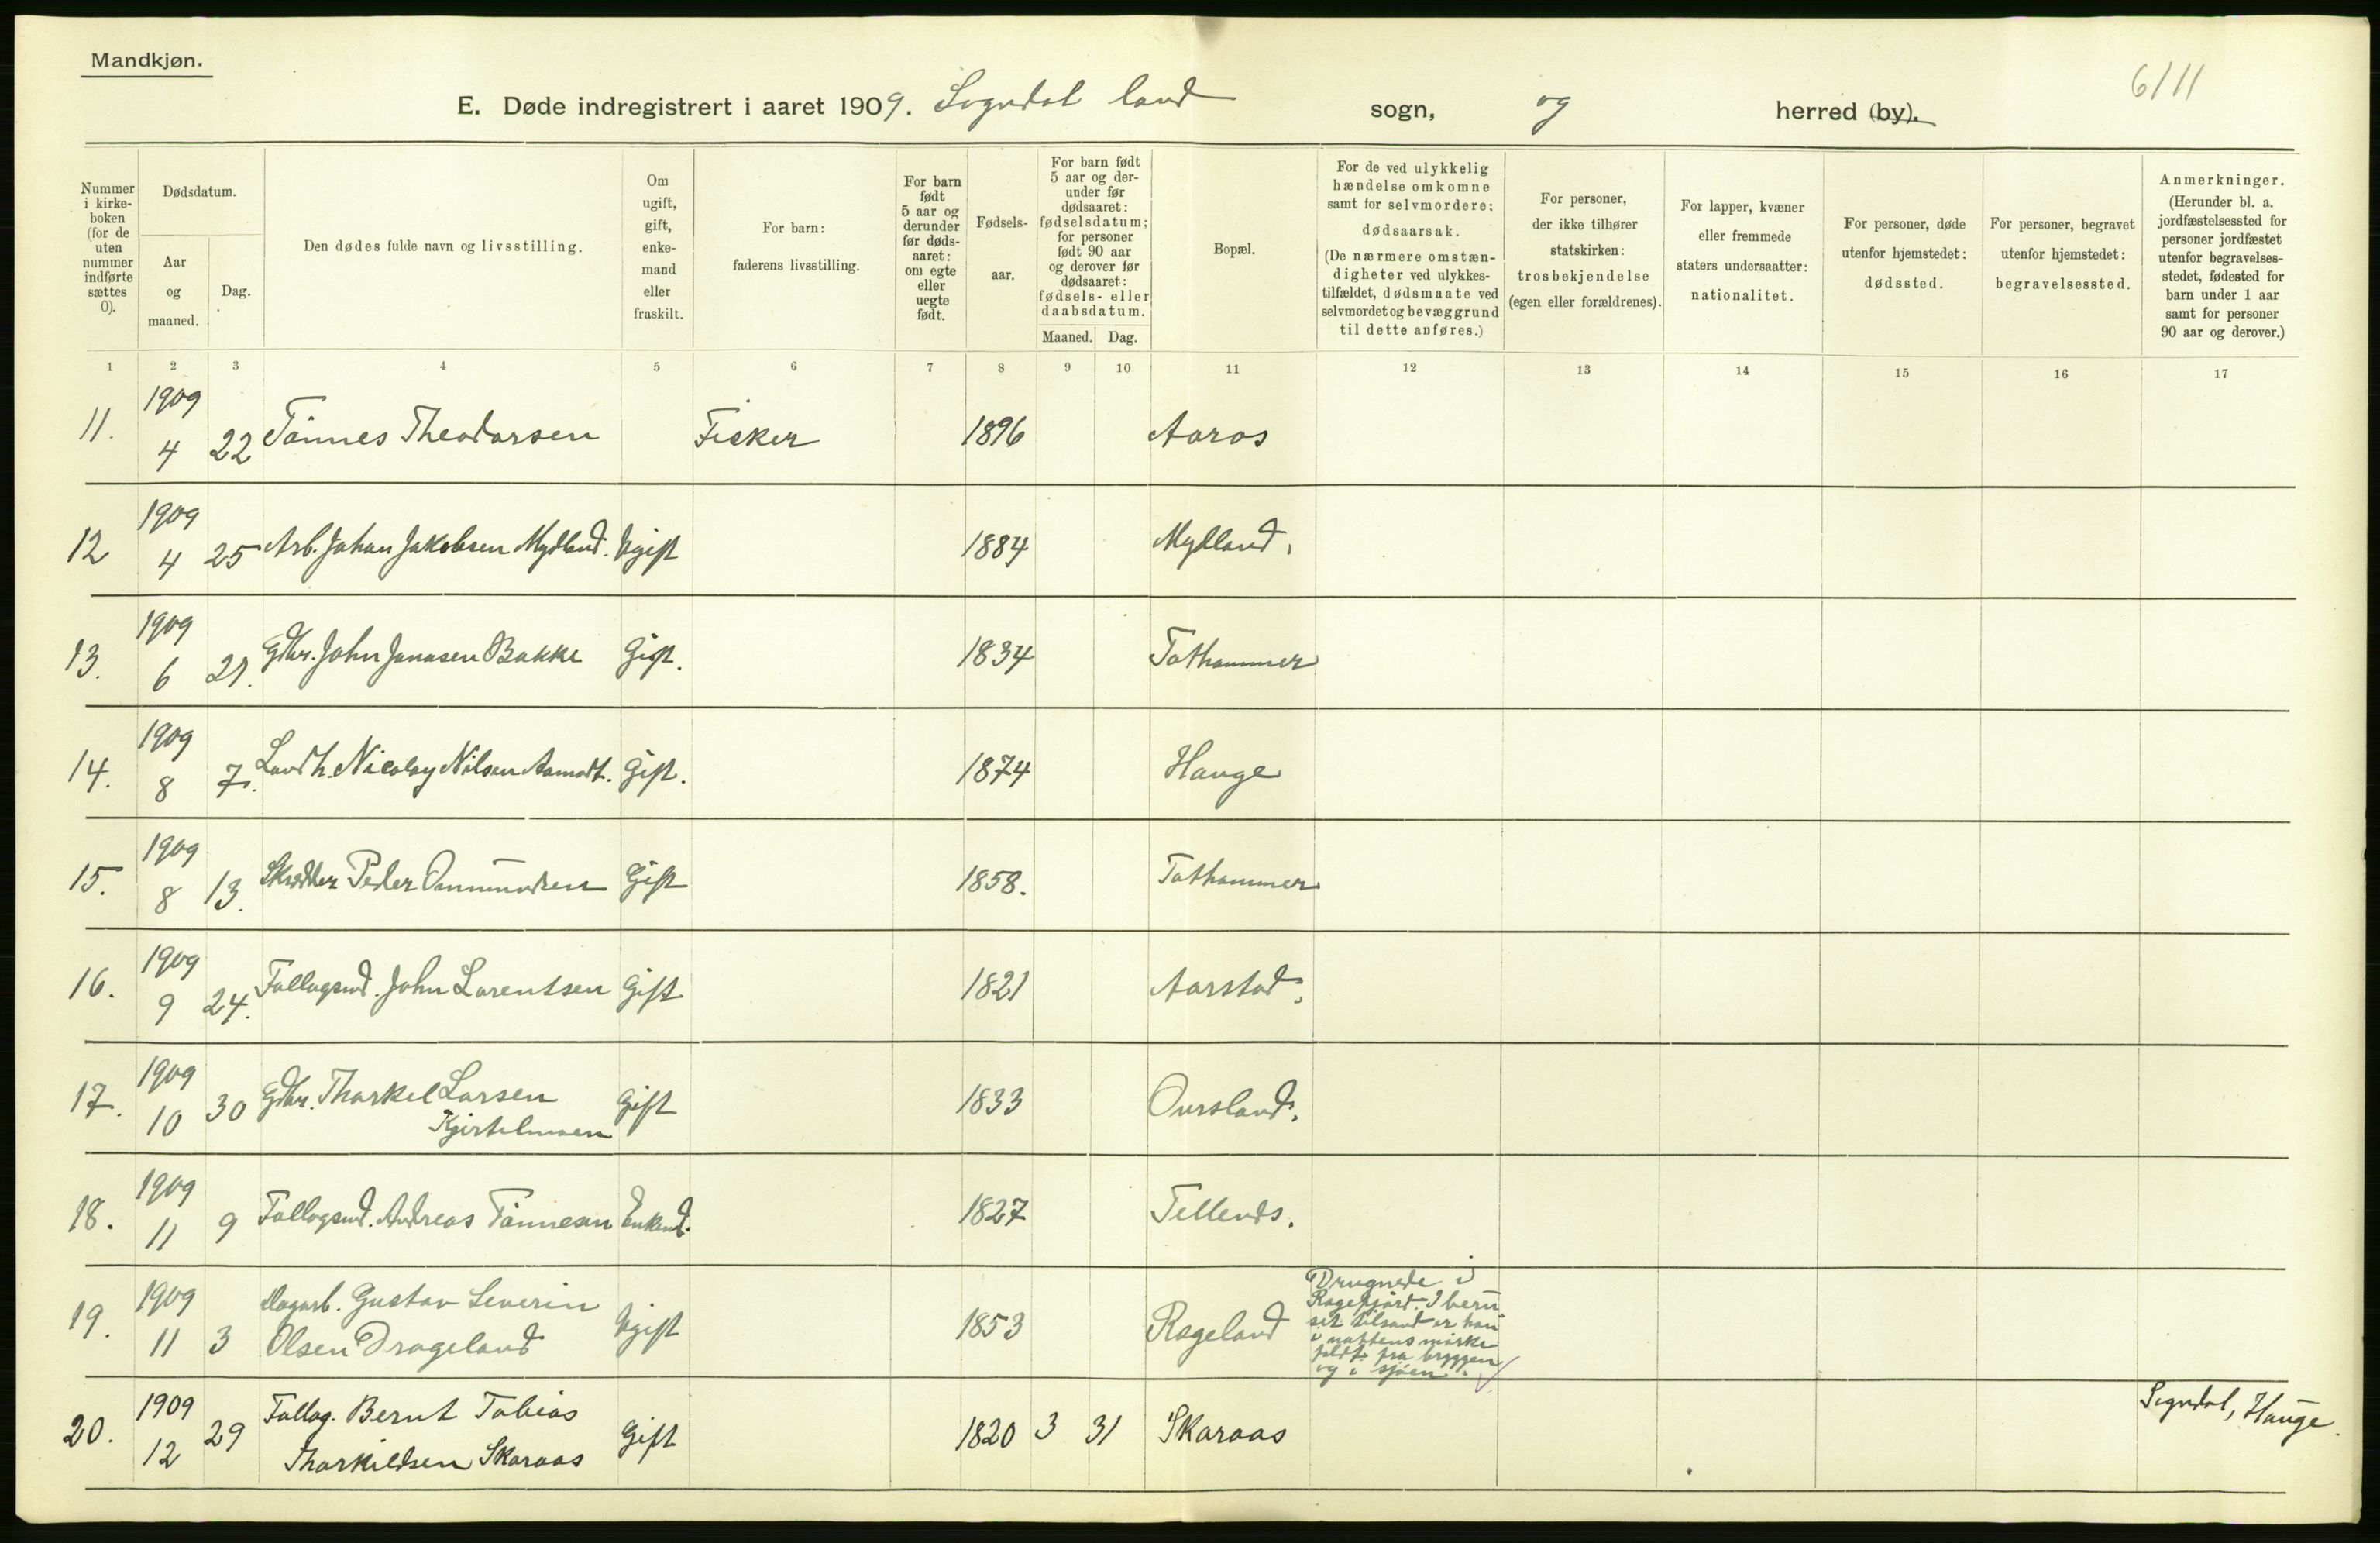 Mandkjøn.
6/11
E. Døde indregistrert i aaret 1909. Sogndal land sogn, og herred (by).
Nummer i kirke- boken (for de uten nummer indførte sættes 0).
Dødsdatum.
Aar og maaned.
Dag.
Den dødes fulde navn og livsstilling.
Om ugift, gift, enke- mand eller fraskilt.
For barn: faderens livsstilling.
For barn født 5 aar og derunder før døds- aaret: om egte eller uegte født.
Fødsels- aar.
For barn født 5 aar og der- under før dødsaaret: fødselsdatum; for personer født 90 aar og derover før dødsaaret: fødsels- eller daabsdatum.
Maaned. Dag.
Bopæl.
For de ved ulykkelig hændelse omkomne samt for selvmordere: dødsaarsak. (De nærmere omstæn- digheter ved ulykkes- tilfældet, dødsmaate ved selvmordet og bevæggrund til dette anføres.)
For personer, der ikke tilhører statskirken: trosbekjendelse (egen eller forældrenes).
For lapper, kvæner eller fremmede staters undersaatter: nationalitet.
For personer, døde utenfor hjemstedet: dødssted.
For personer, begravet utenfor hjemstedet: begravelsessted.
Anmerkninger. (Herunder bl. a. jordfæstelsessted for personer jordfæstet utenfor begravelses- stedet, fødested for barn under 1 aar samt for personer 90 aar og derover.)
1 2 3 4 5 6 7 8 9 10 11 12 13 14 15 16 17
11. 1909 4 22 Tönnes Theodorsen Fisker 1896 Aaros
12 1909 4 25 Arb. Johan Jakobsen Mydland. Ugift 1884 Mydland.
13. 1909 6 21. Gdbr. John Jonasen Bakke Gift. 1834 Tothammer
14. 1909 8 7. Landh. Nicolay Nilsen Aamodt. Gift. 1874 Hauge
15. 1909 8 13. Skrædder Peder Ommundsen Gift 1858. Tothammer
16. 1909 9 24. Follagsmd. John Lorentsen Gift 1821 Aarstad.
17. 1909 10 30 Gdbr. Thorkel Larsen Gift 1833 Oursland.
Kjirtelmoen
18. 1909 11 9 Follagsmd. Andreas Tönnesen Enkmd. 1827 Tellends.
19. 1909 11 3 Dagarb. Gustav Severin
Olsen Drageland Ugift 1853 Rægeland
Drugnede i
Rægefjord. I beru
set tilstand er han
i nattens mörke
faldt fra bryggen
og i sjöen.
20. 1909 12 29 Follag. Bernt Tobias
Thorkildsen Skaraas Gift 1820 3 31 Skaraas Sogndal, Hauge.